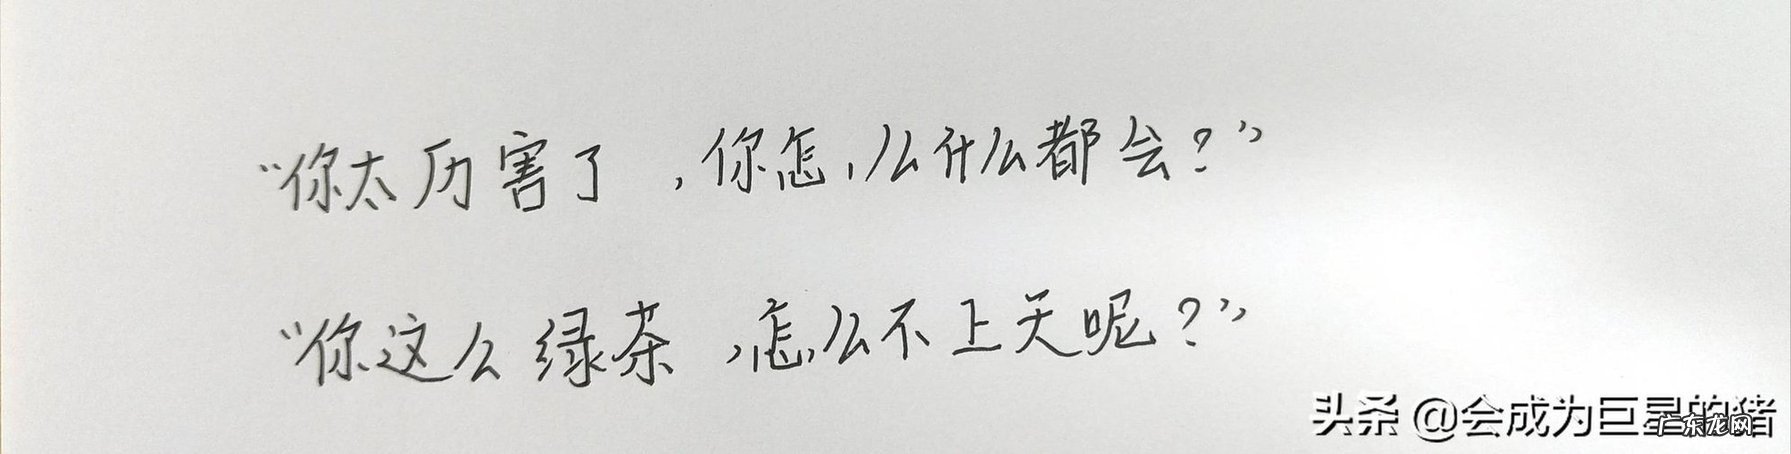 “你太历害了，你怎么什么都会？”
“你这么绿茶，怎么不上天呢？”
头条 @会成为巨星的猪
广东龙网